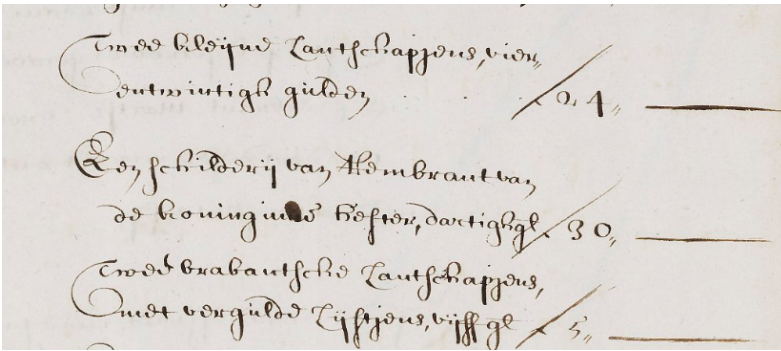 Twee kleijne Lantschapjens, vier„
entwintigh gulden . . . 24„
Een schilderij van Rembrant van
de koninginne Hester, dartigh gl. 30„
Twee brabantsche Lantschapjens,
met vergulde Lijstjens, vijff gl 5„